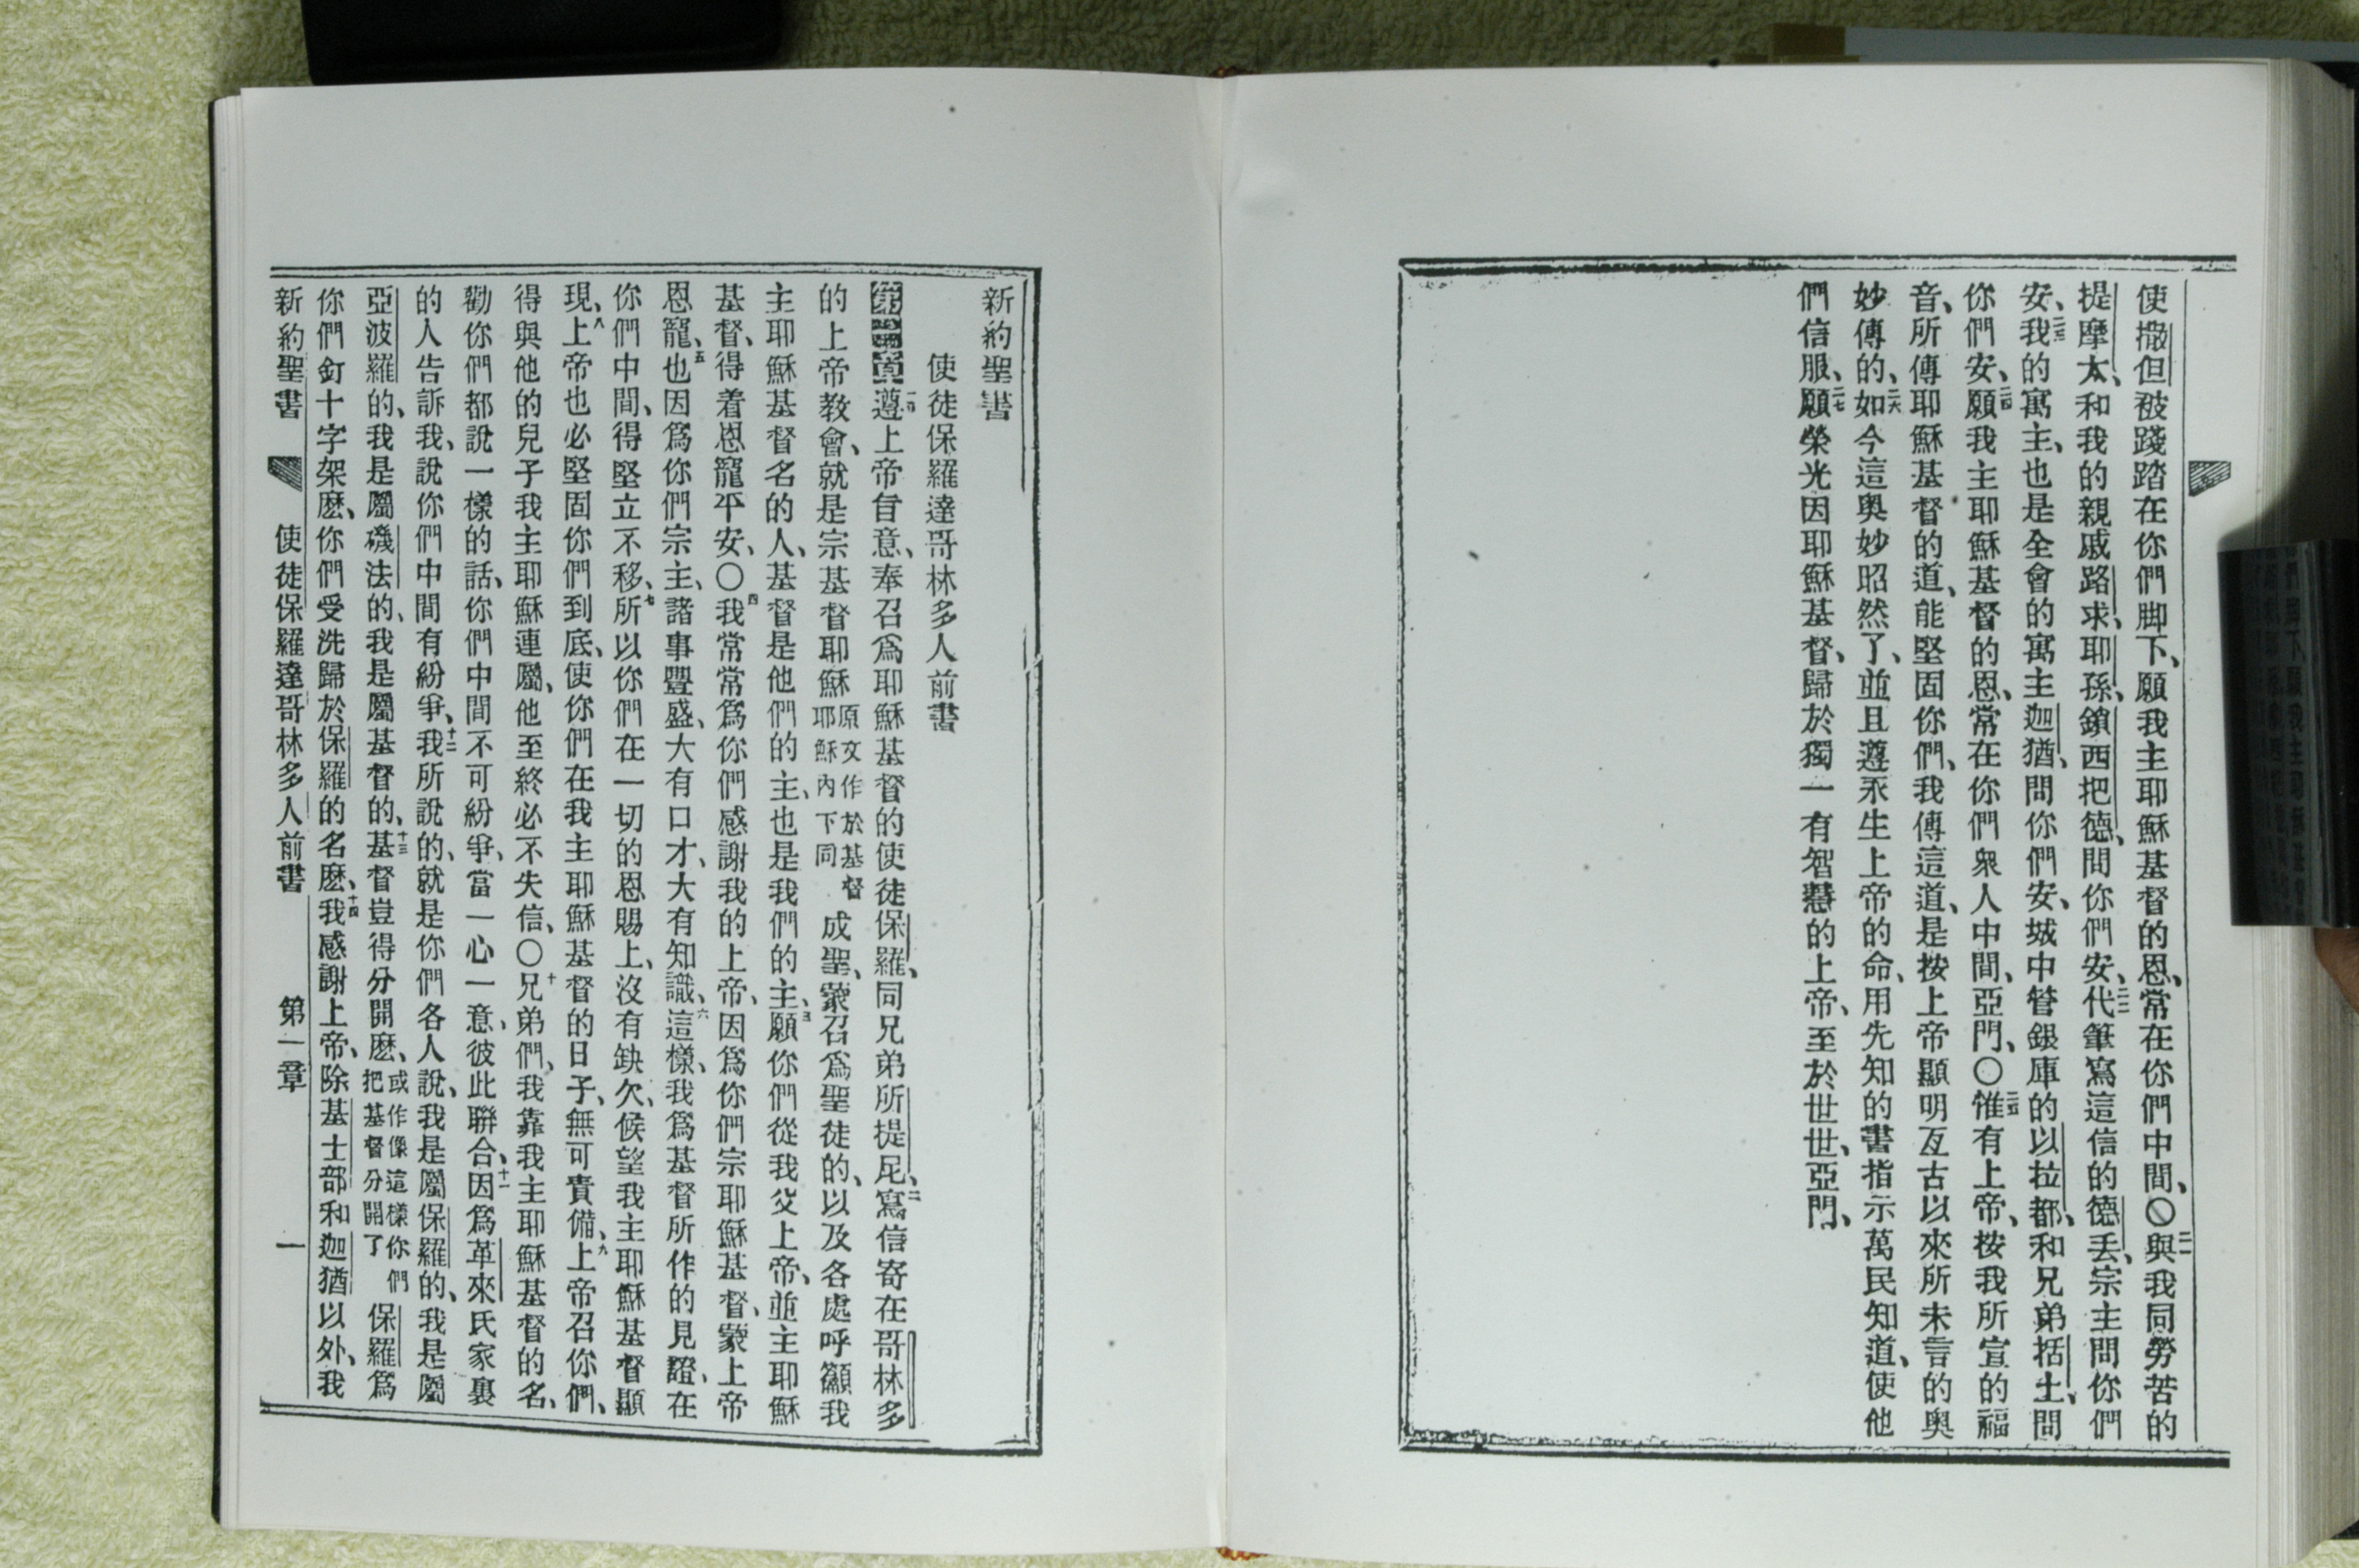 使撒但被踐踏在你們脚下、願我主耶穌基督的恩、常在你們中間、〇二一與我同勞苦的
提摩太、和我的親戚路求、耶孫、鎖西把德、問你們安、二二代筆寫這信的德丢、宗主問你們
安、二三我的寓主、也是全會的寓主迦猶、問你們安、城中管銀庫的以拉都、和兄弟括土、問
你們安、二四願我主耶穌基督的恩、常在你們衆人中間、亞門、〇二五惟有上帝、按我所宣的福
音、所傳耶穌基督的道、能堅固你們、我傳這道、是按上帝顯明亙古以來所未言的奧
妙傳的、二六如今這奧妙昭然了、並且遵永生上帝的命、用先知的書指示萬民知道、使他
們信服、二七願榮光因耶穌基督、歸於獨一有智慧的上帝、至於世世、亞門、
新約聖書
使徒保羅達哥林多人前書
第一章一遵上帝旨意、奉召爲耶穌基督的使徒保羅、同兄弟所提尼、二寫信寄在哥林多
的上帝教會、就是宗基督耶穌原文作於基督耶穌內下同成聖、蒙召爲聖徒的、以及各處呼籲我
主耶穌基督名的人、基督是他們的主、也是我們的主、三願你們從我父上帝、並主耶穌
基督、得着恩寵平安、〇四我常常爲你們感謝我的上帝、因爲你們宗耶穌基督、蒙上帝
恩寵、五也因爲你們宗主、諸事豐盛、大有口才、大有知識、六這樣、我爲基督所作的見證、在
你們中間、得堅立不移、七所以你們在一切的恩賜上、沒有缺欠、候望我主耶穌基督顯
現、八上帝也必堅固你們到底、使你們在我主耶穌基督的日子、無可責備、九上帝召你們、
得與他的兒子我主耶穌連屬、他至終必不失信、〇十兄弟們、我靠我主耶穌基督的名、
勸你們都說一樣的話、你們中間不可紛爭、當一心一意、彼此聯合、十一因爲革來氏家裏
的人告訴我、說你們中間有紛爭、十二我所說的、就是你們各人說、我是屬保羅的、我是屬
亞波羅的、我是屬磯法的、我是屬基督的、十三基督豈得分開麽、或作像這樣你們把基督分開了保羅爲
你們釘十字架麽、你們受洗歸於保羅的名麽、十四我感謝上帝、除基士部和迦猶以外、我
新約聖書 使徒保羅達哥林多人前書 第一章 一